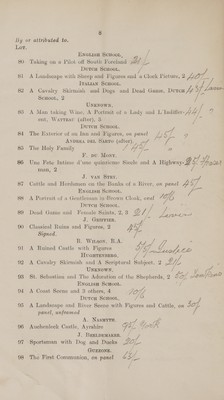 8
By or attributed to.
Lot.
ENGLISH SCHOOL.
80 Taking on a Pilot off South Foreland 21/-
DUTCH SCHOOL.
81 A Landscape with Sheep and Figures and a Clock Picture, 2
ITALIAN SCHOOL.
82 A Cavalry Skirmish and Dogs and Dead Game, DUTCH
SCHOOL, 2
UNKNOWN.
83 A Man taking Wine, A Portrait of a Lady and L'Indiffer-
ent, WATTEAU (after), 3
DUTCH SCHOOL.
84 The Exterior of an Inn and Figures, on panel 45/-
ANDREA DEL SARTO (after)
85 The Holy Family
F. DU MONT.
86 Une Fete Intime d'une quinzieme Siecle and A Highway,
2
J. VAN STRY.
87 Cattle and Herdsmen on the Banks of a River, on panel 45/-
ENGLISH SCHOOL.
88 A Portrait of a Gentleman in Brown Cloak, oval 10/6
DUTCH SCHOOL.
89 Dead Game and Female Saints, 2, 3 21/-
J. GRIFFIER.
90 Classical Ruins and Figures, 2
Signed.
R. WILSON, R.A.
91 A Ruined Castle with Figures
HUGHTENBERG.
92 A Cavalry Skirmish and A Scriptural Subject, 2
UNKNOWN.
93 St. Sebastian and The Adoration of the Shepherds, 2
ENGLISH SCHOOL.
94 A Coast Scene and 2 others, 4 10/6
DUTCH SCHOOL.
95 A Landscape and River Scene with Figures and Cattle, on
panel, unframed
A. NASMYTH.
96 Auchenleck Castle, Ayrshire
J. SHELDEMAKER.
97 Sportsmen with Dog and Ducks
GUERONE.
98 The First Communion, on panel